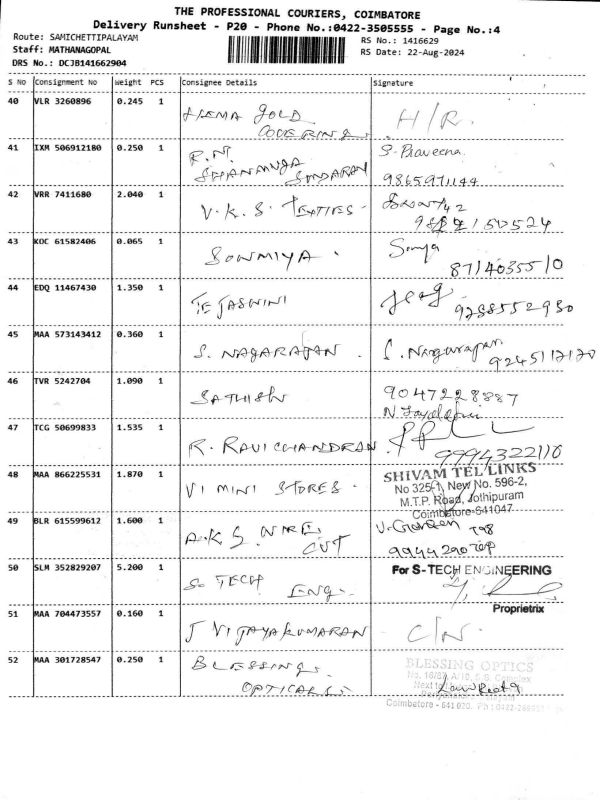 THE PROFESSIONAL COURIERS, COIMBATORE
Delivery Runsheet - P20 - Phone No.:0422-3505555 - Page No.:4
Route: SAMICHETTIPALAYAM
RS No.: 1416629
Staff: MATHANAGOPAL
RS Date: 22-Aug-2024
DRS No.: DCJB141662904
S No Consignment No Weight PCS Consignee Details Signature
40 VLR 3260896 0.245 1 HEMA GOLD H/R.
COVERING
41 IXM 506912180 0.250 1 R.N. S. Praveena
SHANMUGA SUNDARAN 9865971144
42 VRR 7411680 2.040 1 V.K.S. TEXTILES-
43 KOC 61582406 0.065 1 SOWMIYA. Sowmya
8714035510
44 EDQ 11467430 1.350 1 TEJASWINI 9788552930
45 MAA 573143412 0.360 1 S. NAGARAJAN. S. Nagarajan
9245117170
46 TVR 5242704 1.090 1 SATHISH 9047228887
47 TCG 50699833 1.535 1 R. RAVICHANDRAN
9994322110
48 MAA 866225531 1.870 1 VI MINI STORES- SHIVAM TEL LINKS
No 325-1, New No. 596-2,
M.T.P. Road, Jothipuram
Coimbatore-641047
49 BLR 615599612 1.600 1 A.K.S. WIRE
CUT
50 SLM 352829207 5.200 1 S. TECH For S-TECH ENGINEERING
ENG.
Proprietrix
51 MAA 704473557 0.160 1 J VIJAYAKUMARAN C/N.
52 MAA 301728547 0.250 1 BLESSINGS. BLESSING OPTICS
OPTICALS.
Coimbatore - 641 020.